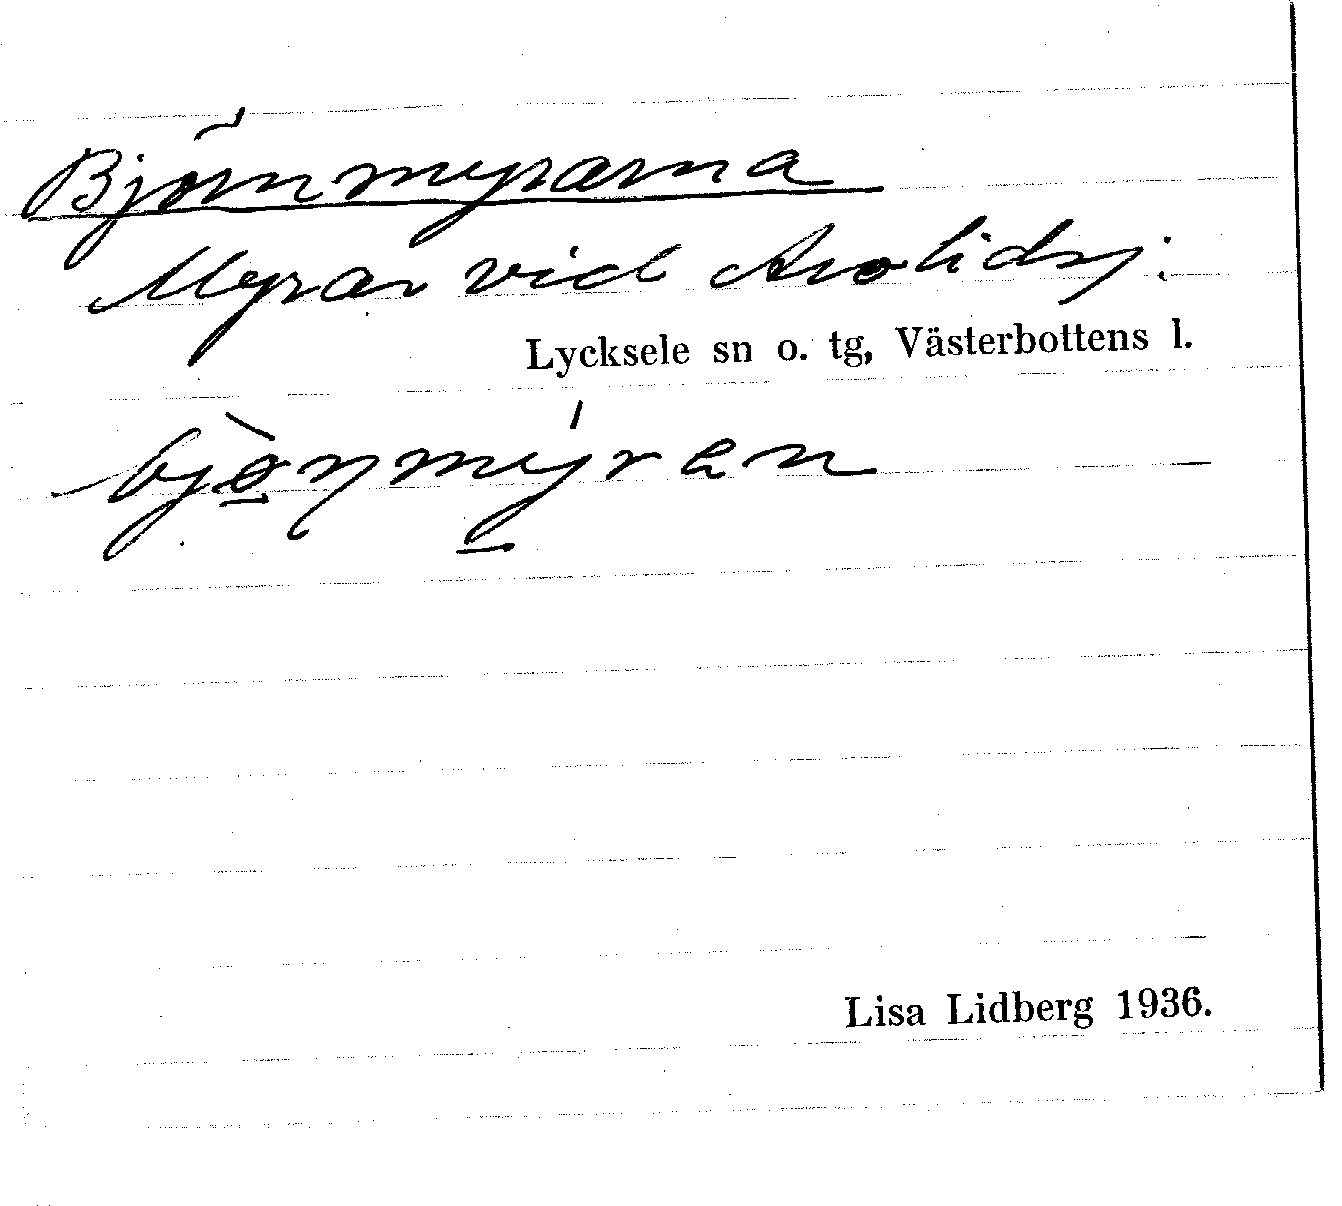 Björnmyrarna
Myrar vid Avalidsj:
Lycksele sn o. tg, Västerbottens l.
bjø̠̀ŋmý̠ren
Lisa Lidberg 1936.